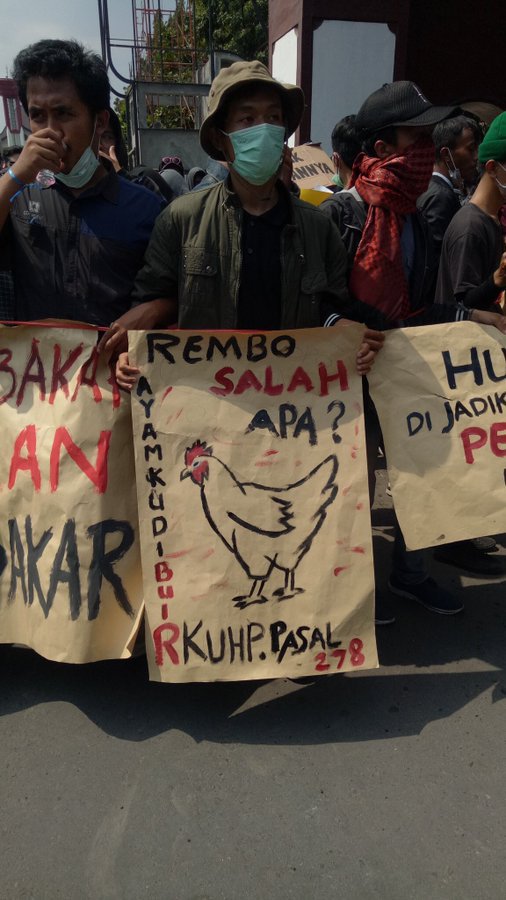 ANNYA
BAKAR
AN
PAKAR
REMBO
SALAH
APA?
AYAMKU DI BUI
RKUHP. PASAL
278
HU
DI JADIK
PE